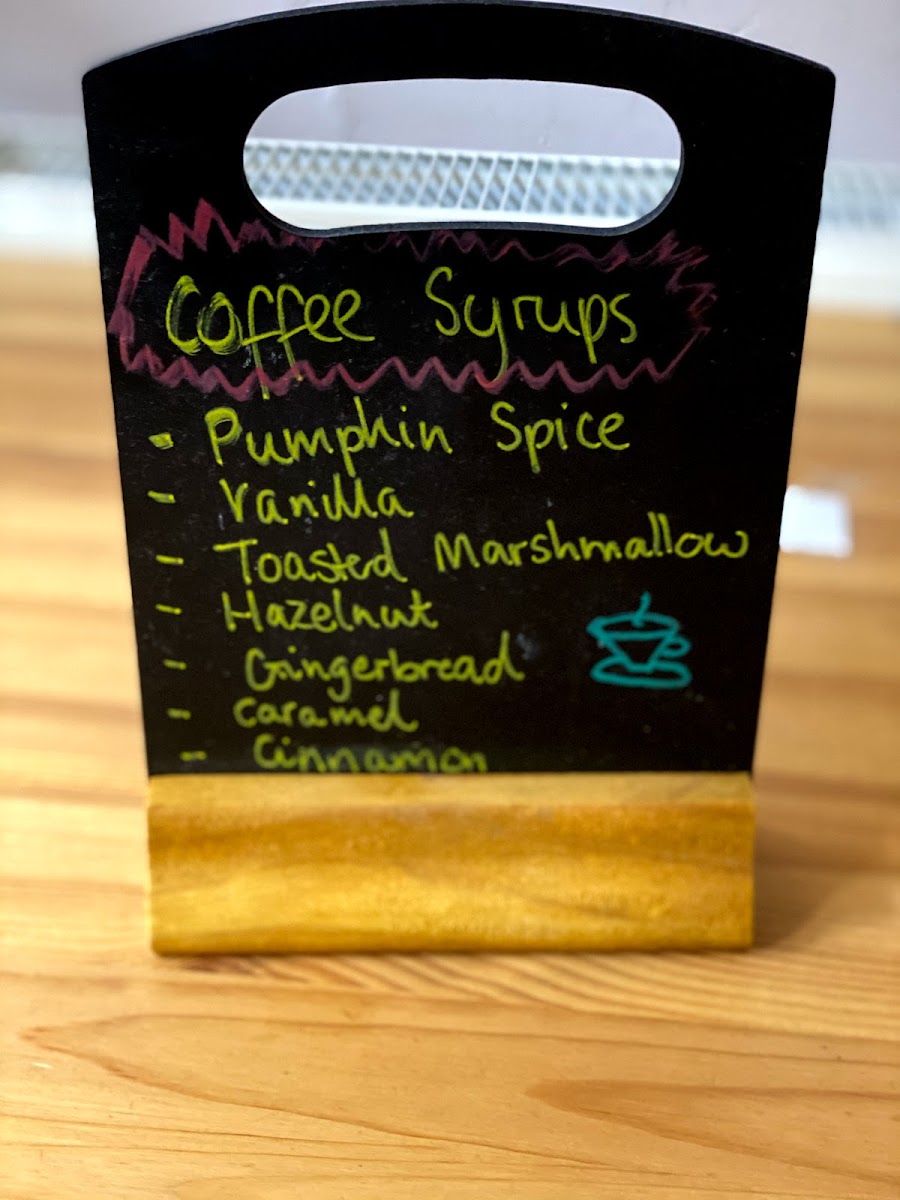 Coffee Syrups
- Pumpkin Spice
- Vanilla
- Toasted Marshmallow
- Hazelnut
- Gingerbread
- Caramel
- Cinnamon